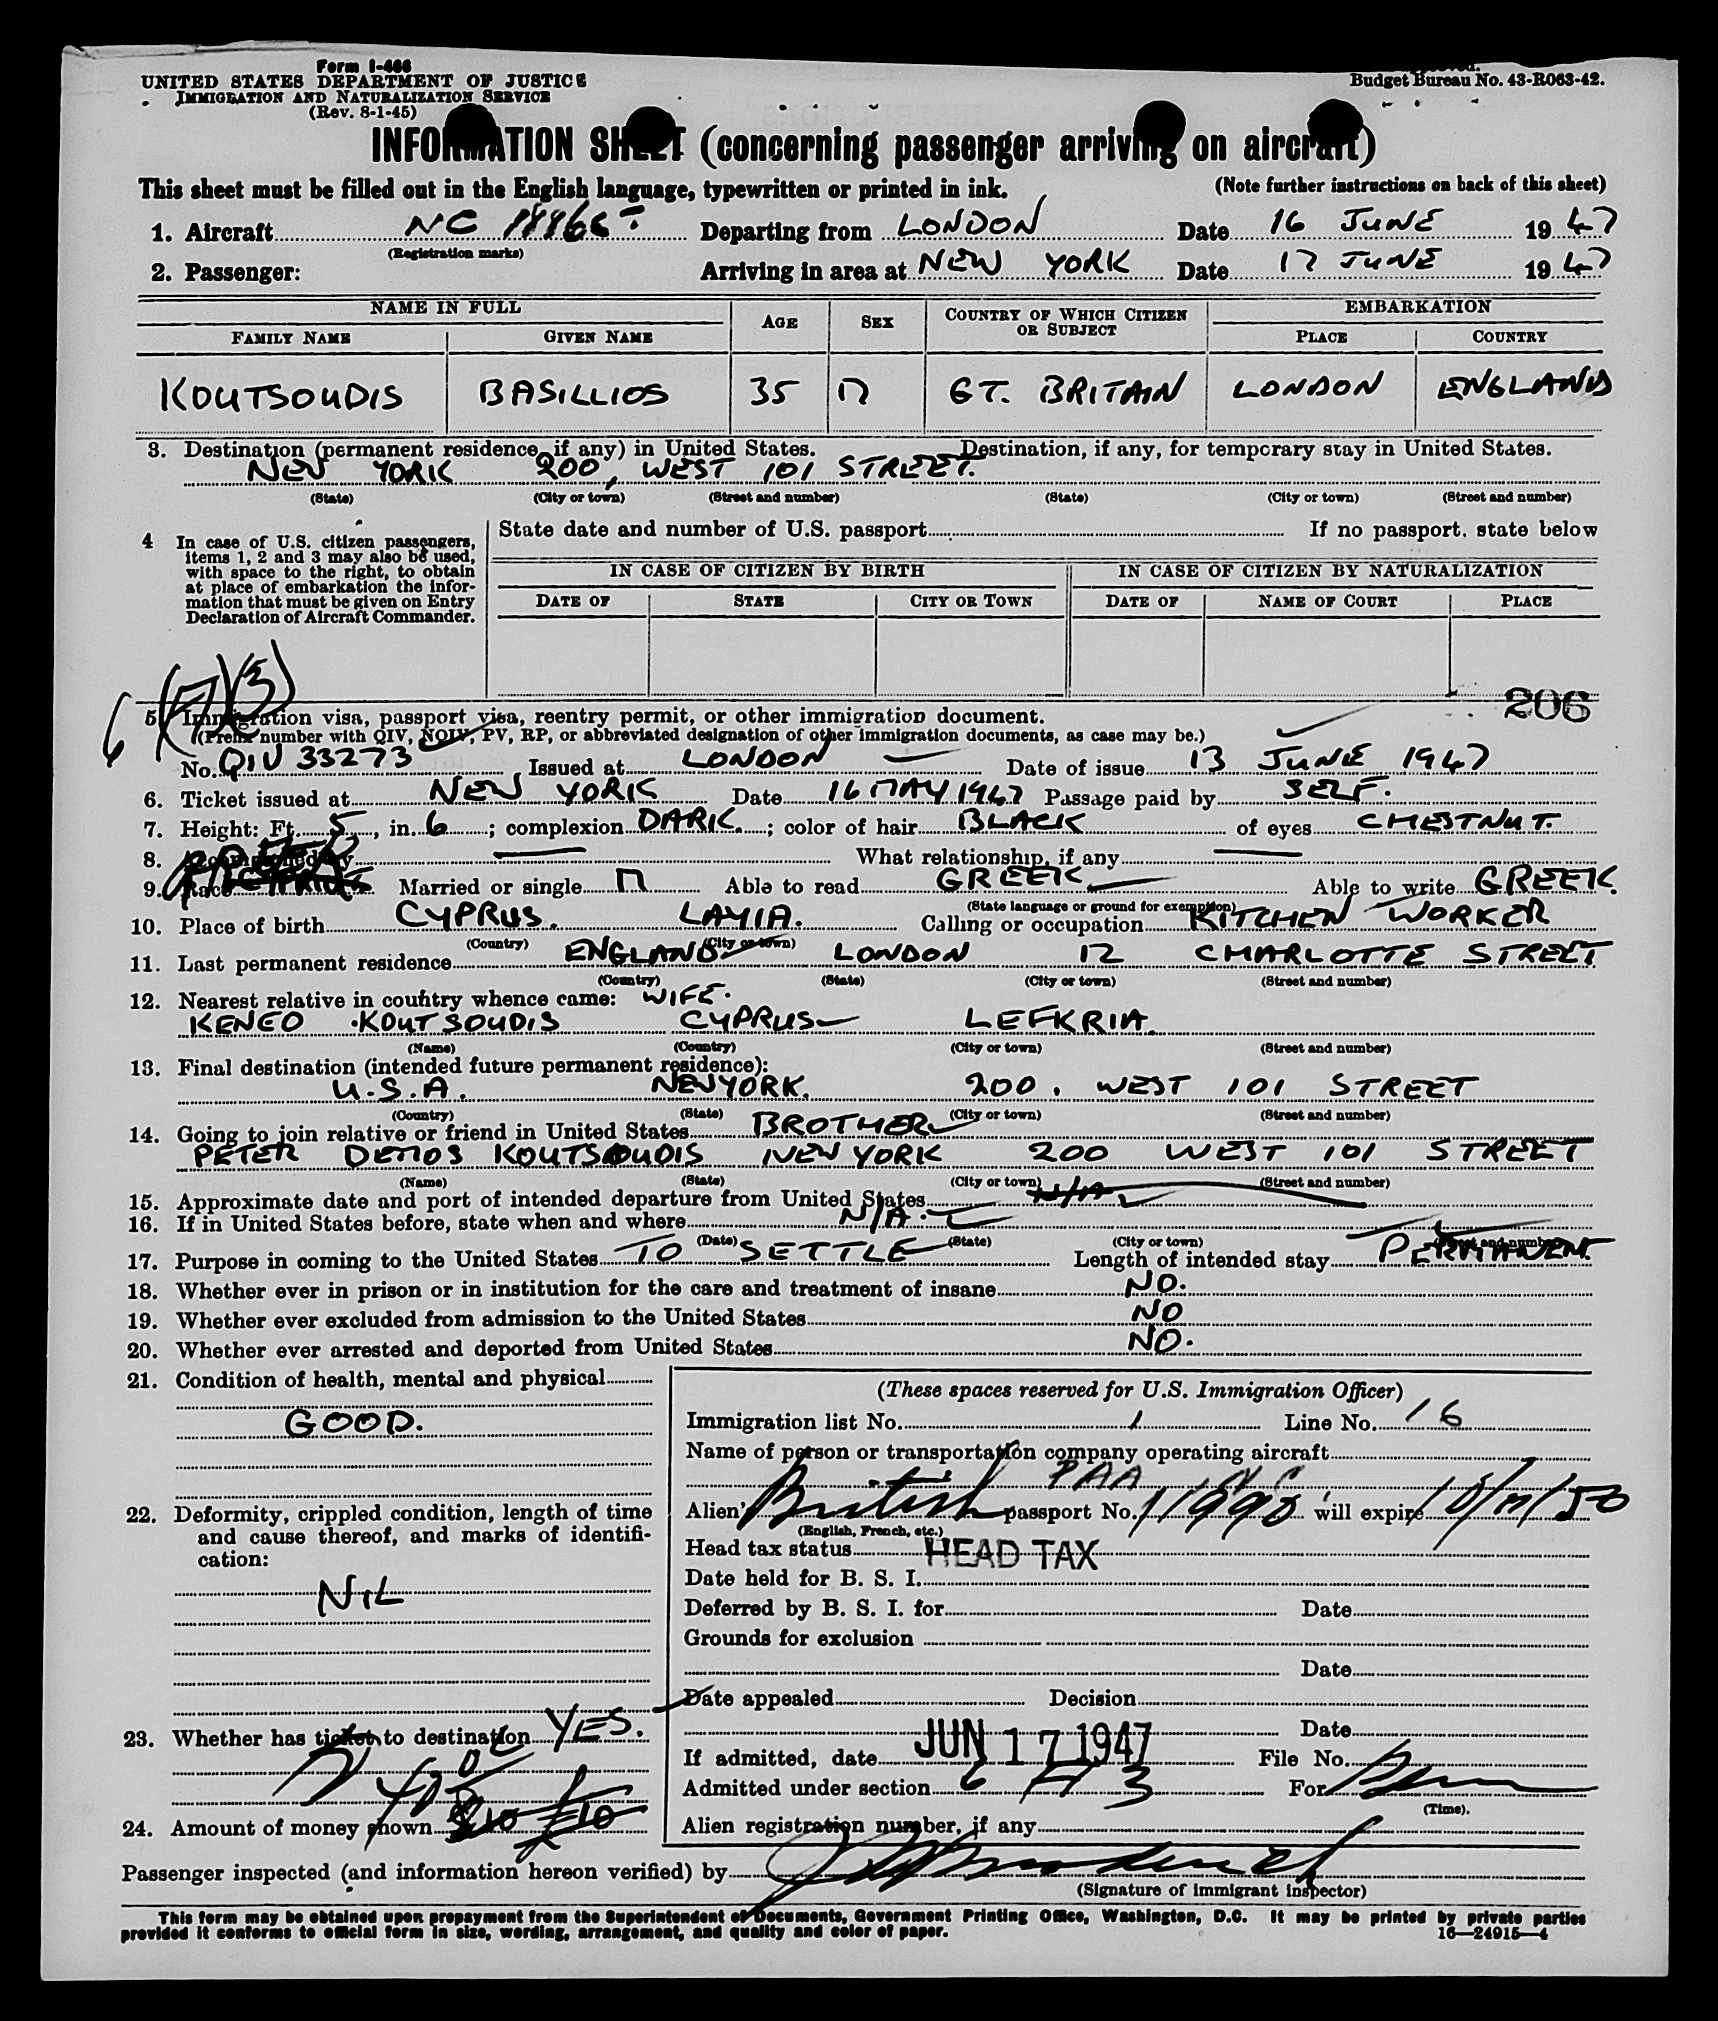 Form I-466
UNITED STATES DEPARTMENT OF JUSTICE
IMMIGRATION AND NATURALIZATION SERVICE
(Rev. 8-1-45)
Budget Bureau No. 43-R063-42.
INFORMATION SHEET (concerning passenger arriving on aircraft)
This sheet must be filled out in the English language, typewritten or printed in ink. (Note further instructions on back of this sheet)
1. Aircraft NC Departing from LONDON Date 16 JUNE 1947
(Registration marks)
2. Passenger: Arriving in area at NEW YORK Date 17 JUNE 1947
NAME IN FULL AGE SEX COUNTRY OF WHICH CITIZEN OR SUBJECT EMBARKATION
FAMILY NAME GIVEN NAME PLACE COUNTRY
KOUTSOUDIS BASILLIOS 35 M GT. BRITAIN LONDON ENGLAND
3. Destination (permanent residence, if any) in United States. Destination, if any, for temporary stay in United States.
NEW YORK 200, WEST 101 STREET.
(State) (City or town) (Street and number) (State) (City or town) (Street and number)
4 In case of U.S. citizen passengers, items 1, 2 and 3 may also be used, with space to the right, to obtain at place of embarkation the information that must be given on Entry Declaration of Aircraft Commander.
State date and number of U.S. passport If no passport, state below
IN CASE OF CITIZEN BY BIRTH IN CASE OF CITIZEN BY NATURALIZATION
DATE OF STATE CITY OR TOWN DATE OF NAME OF COURT PLACE
6 (7)(3)
206
5. Immigration visa, passport visa, reentry permit, or other immigration document.
(Prefix number with QIV, NQIV, PV, RP, or abbreviated designation of other immigration documents, as case may be.)
No. QIV 33273 Issued at LONDON Date of issue 13 JUNE 1947
6. Ticket issued at NEW YORK Date 16 MAY 1947 Passage paid by SELF.
7. Height: Ft. 5, in. 6; complexion DARK.; color of hair BLACK of eyes CHESTNUT.
8. Accompanied by — What relationship, if any —
9. Race Married or single M Able to read GREEK Able to write GREEK.
(State language or ground for exemption)
10. Place of birth CYPRUS. LAYIA. Calling or occupation KITCHEN WORKER
(Country) (City or town)
11. Last permanent residence ENGLAND LONDON 12 CHARLOTTE STREET
(Country) (State) (City or town) (Street and number)
12. Nearest relative in country whence came: WIFE.
KENEO KOUTSOUDIS CYPRUS LEFKRIA.
(Name) (Country) (City or town) (Street and number)
13. Final destination (intended future permanent residence):
U.S.A. NEWYORK. 200, WEST 101 STREET
(Country) (State) (City or town) (Street and number)
14. Going to join relative or friend in United States BROTHER
PETER DEMOS KOUTSOUDIS NEW YORK 200 WEST 101 STREET
(Name) (State) (City or town) (Street and number)
15. Approximate date and port of intended departure from United States N/A
16. If in United States before, state when and where N/A.
(Date) (State) (City or town) (Street and number)
17. Purpose in coming to the United States TO SETTLE Length of intended stay PERMANENT
18. Whether ever in prison or in institution for the care and treatment of insane NO.
19. Whether ever excluded from admission to the United States NO
20. Whether ever arrested and deported from United States NO.
21. Condition of health, mental and physical
GOOD.
22. Deformity, crippled condition, length of time and cause thereof, and marks of identification:
NIL
23. Whether has ticket to destination YES.
24. Amount of money shown
(These spaces reserved for U.S. Immigration Officer)
Immigration list No. 1 Line No. 16
Name of person or transportation company operating aircraft
PAA INC
Alien's British passport No. will expire
(English, French, etc.)
Head tax status HEAD TAX
Date held for B. S. I.
Deferred by B. S. I. for Date
Grounds for exclusion
Date
Date appealed Decision
Date
If admitted, date JUN 17 1947 File No.
Admitted under section 6 A 3 For
(Time).
Alien registration number, if any
Passenger inspected (and information hereon verified) by
(Signature of immigrant inspector)
This form may be obtained upon prepayment from the Superintendent of Documents, Government Printing Office, Washington, D.C. It may be printed by private parties
provided it conforms to official form in size, wording, arrangement, and quality and color of paper. 16—24915—4